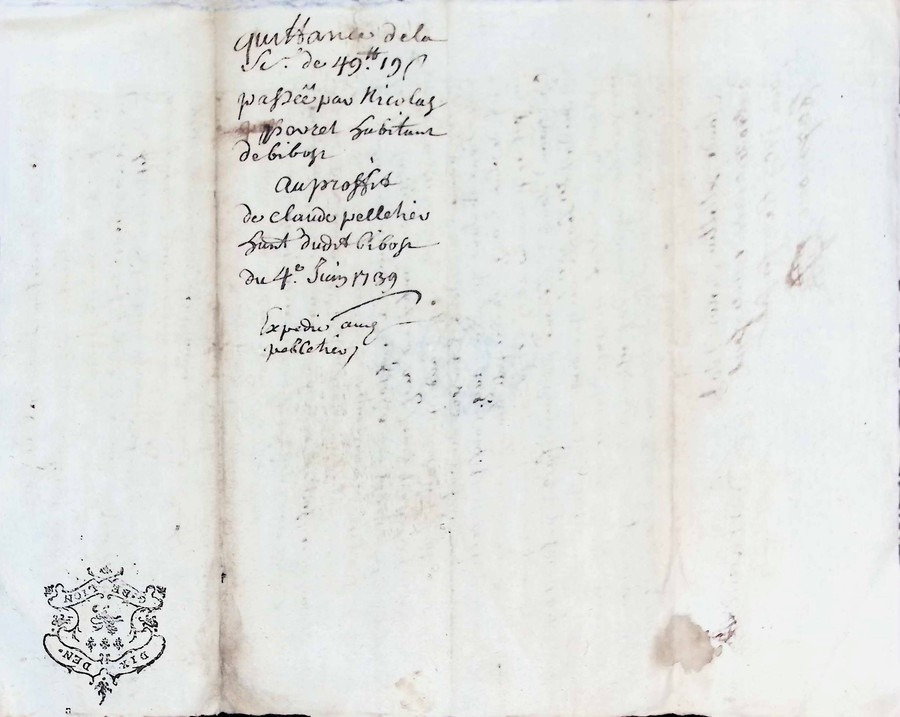 quittance dela
Se. de 49.tt 19 s
passée par Nicolas
pouret habitant
de bibost
au proffit
de claude pelletier
hant dudit bibost
du 4.e Juin 1739
Expedié aud
pelletier
G. DE LION
DIX DEN.